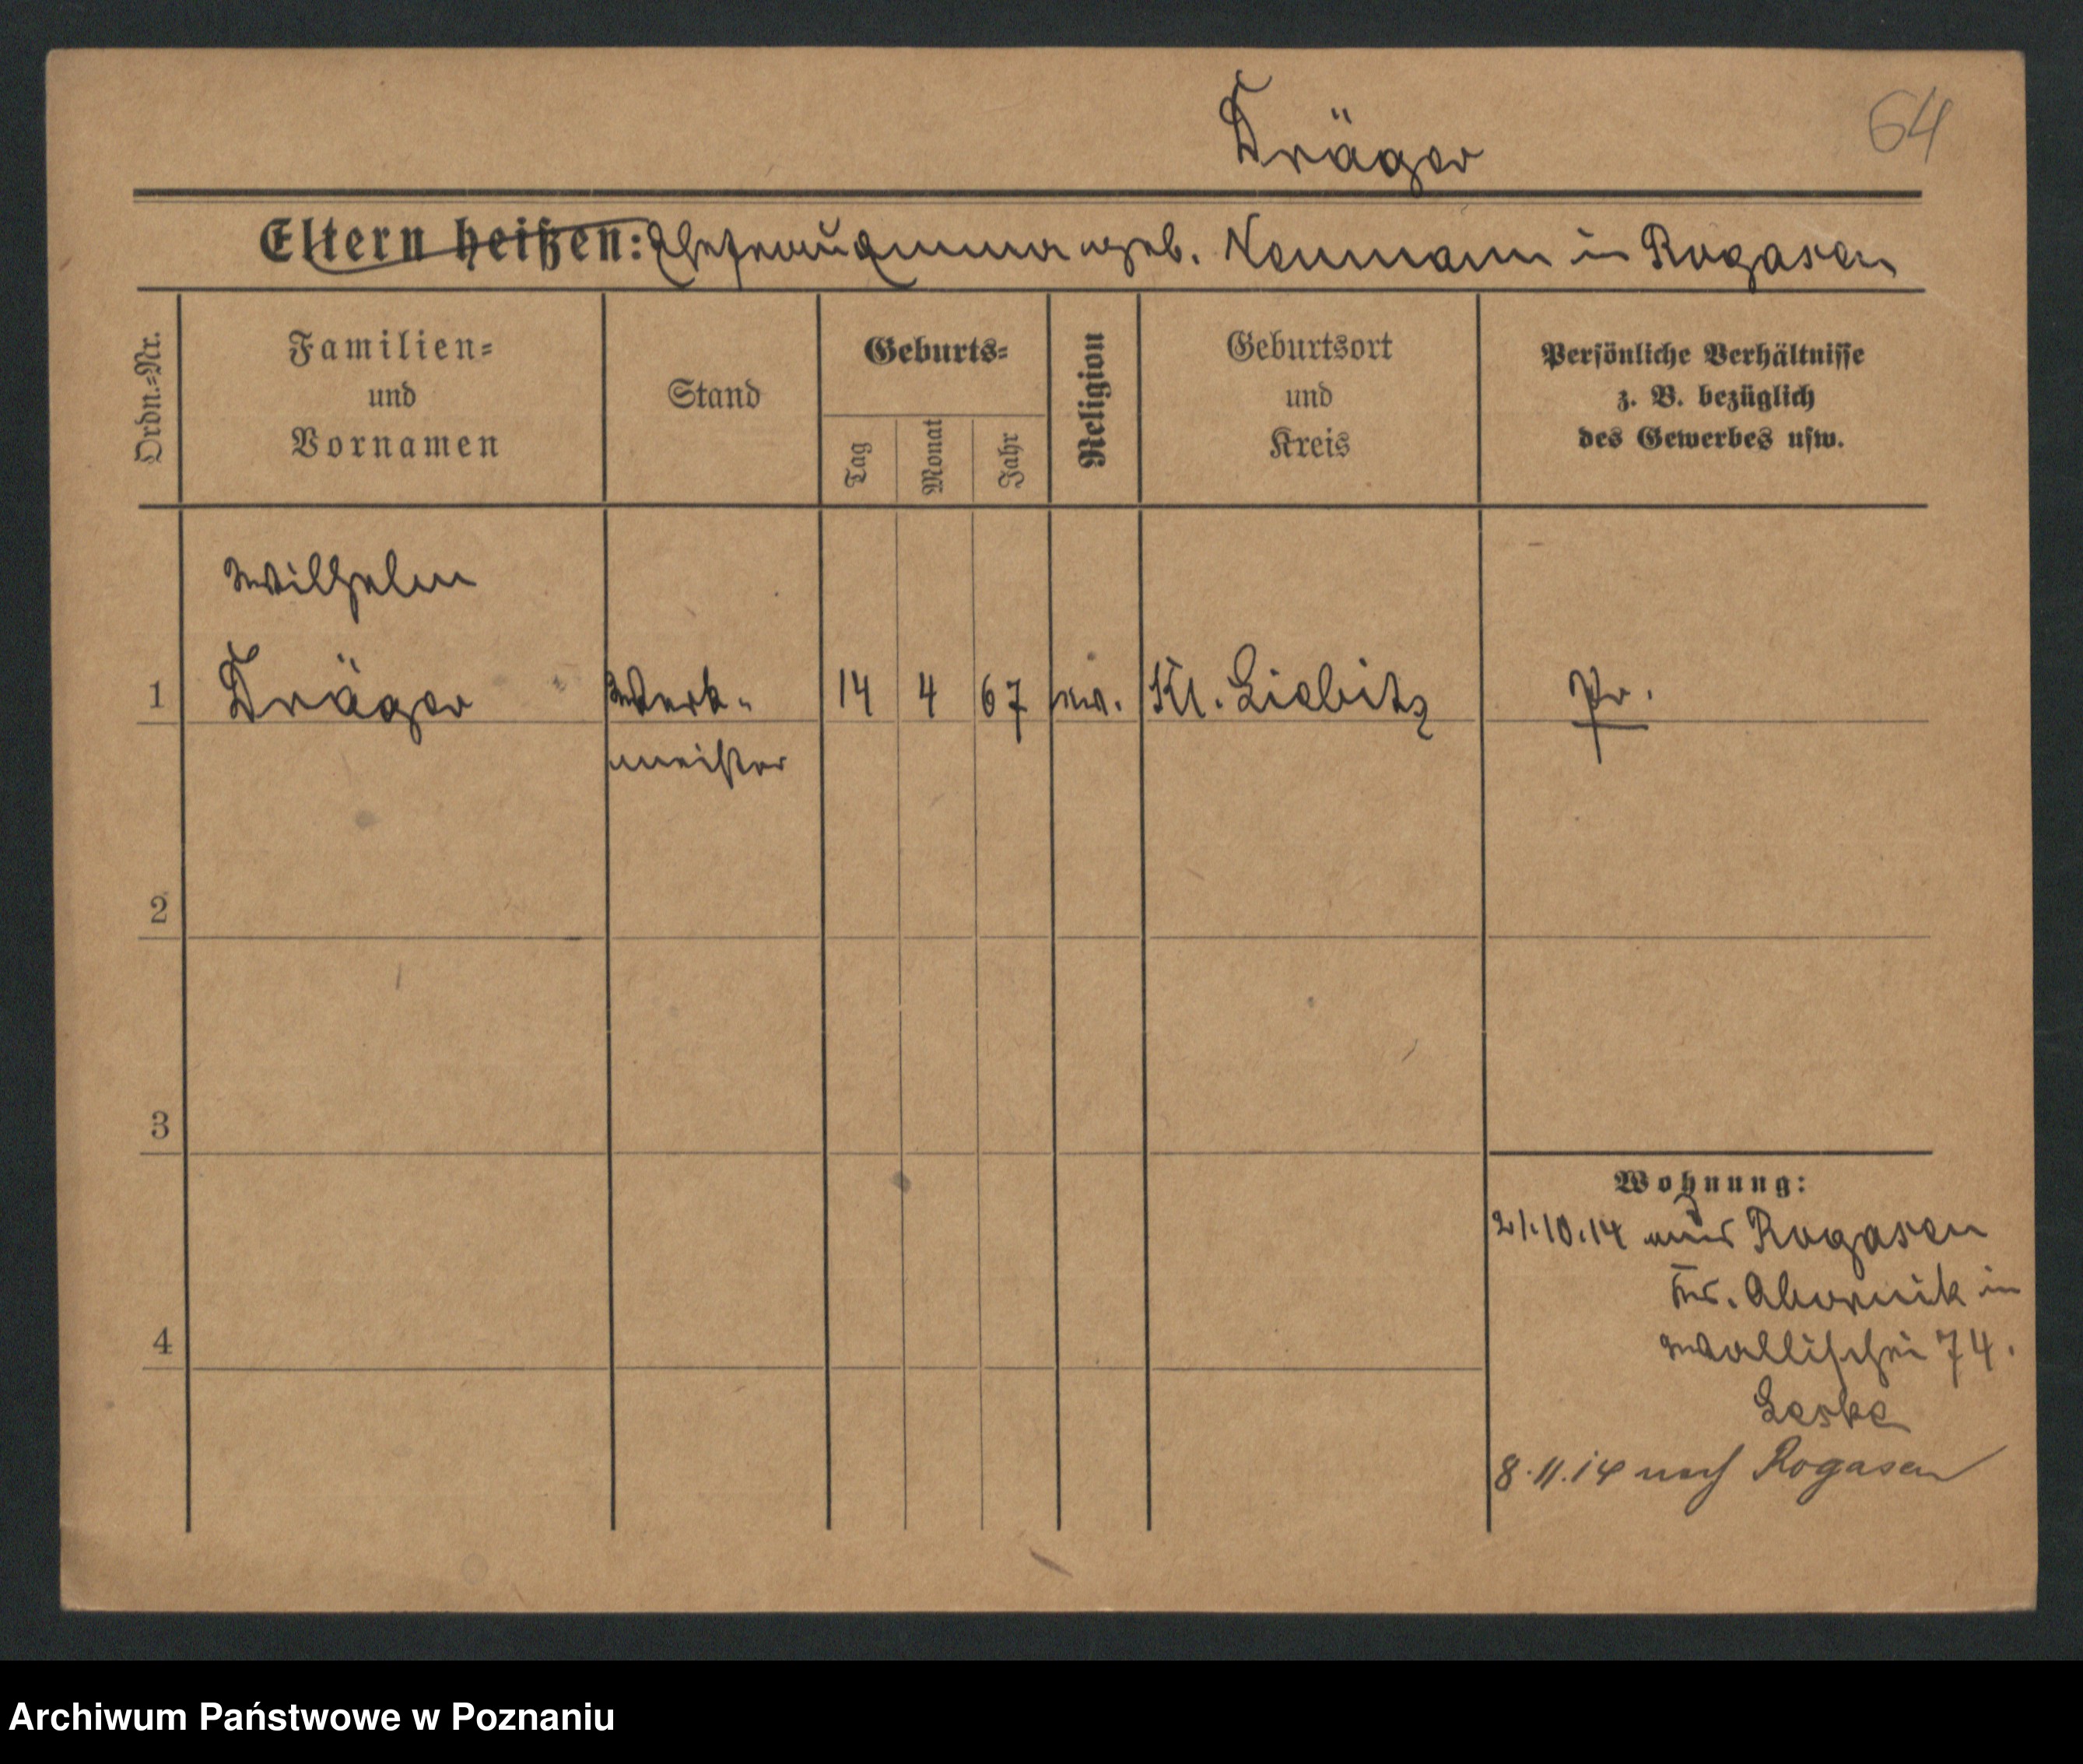 Dräger
64
Eltern heißen: Ehefrau Emma geb. Neumann in Rogasen
Ordn.-Nr.
Familien-
und
Vornamen
Stand
Geburts-
Tag
Monat
Jahr
Religion
Geburtsort
und
Kreis
Persönliche Verhältnisse
z. B. bezüglich
des Gewerbes usw.
Wilhelm
1 Dräger Werk- 14 4 67 ev. Kl. Liebitz Pr.
meister
2
3
4
Wohnung:
21.10.14 aus Rogasen
Krs. Obornik in
Wallischei 74.
Leske
8.11.14 nach Rogasen
Archiwum Państwowe w Poznaniu